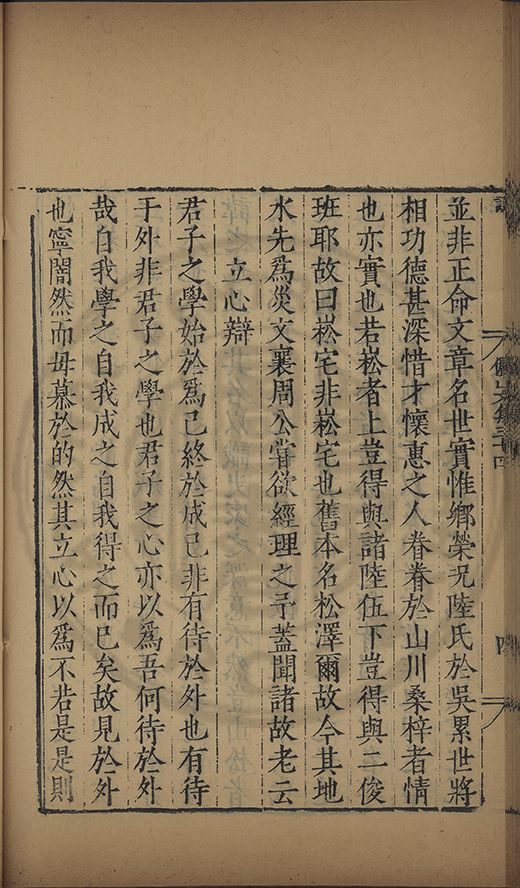 並非正命文章名世實惟鄉榮況陸氏於吳累世將
相功德甚深惜才懷惠之人眷眷於山川桑梓者情
也亦實也若崧者上豈得與諸陸伍下豈得與二俊
班耶故曰崧宅非崧宅也舊本名松澤爾故今其地
水先爲災文襄周公嘗欲經理之予蓋聞諸故老云
立心辯
君子之學始於爲己終於成己非有待於外也有待
于外非君子之學也君子之心亦以爲吾何待於外
哉自我學之自我成之自我得之而已矣故見於外
也寧闇然而毋慕於的然其立心以爲不若是是則